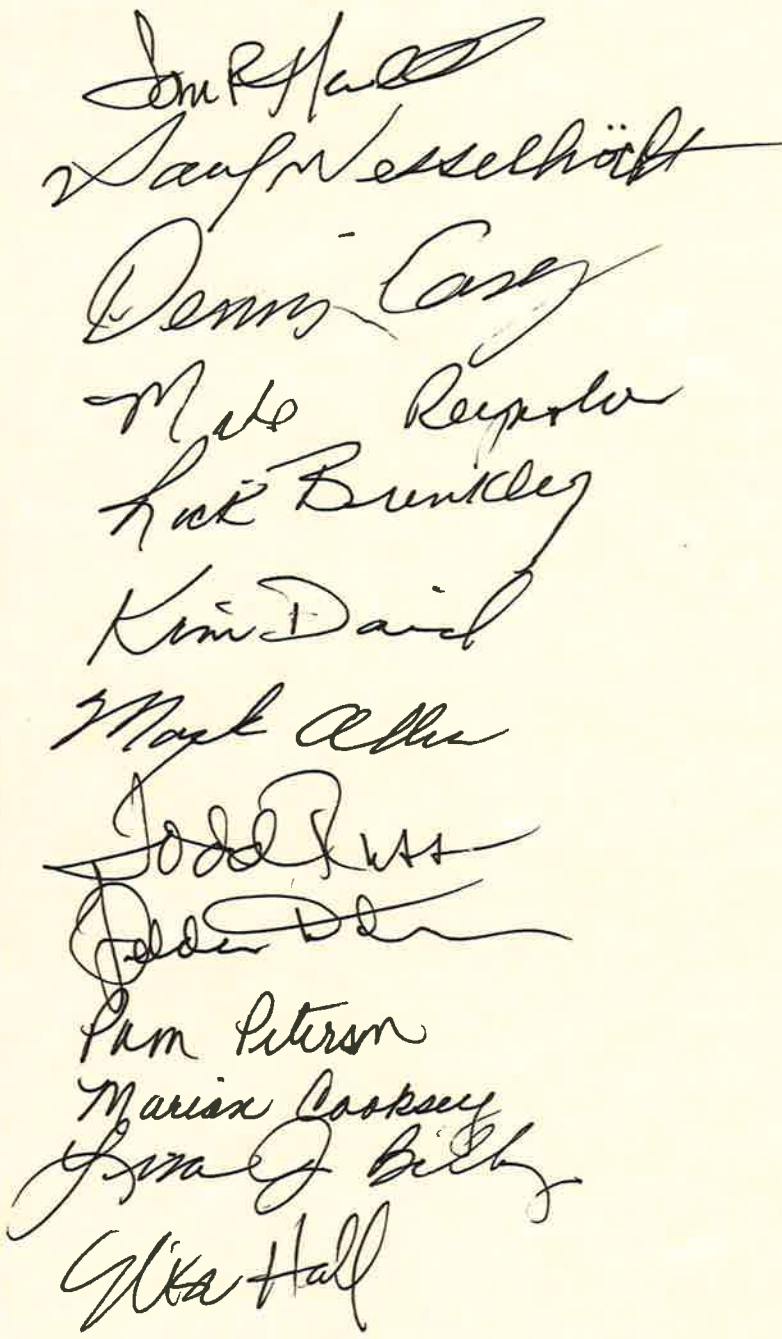 Paul Wesselhöft
Dennis Casey
Reynolds
Rick Brinkley
Kim David
Mark Allen
Todd Russ
Pam Peterson
Marian Cooksey
Lisa J Billy
Elise Hall